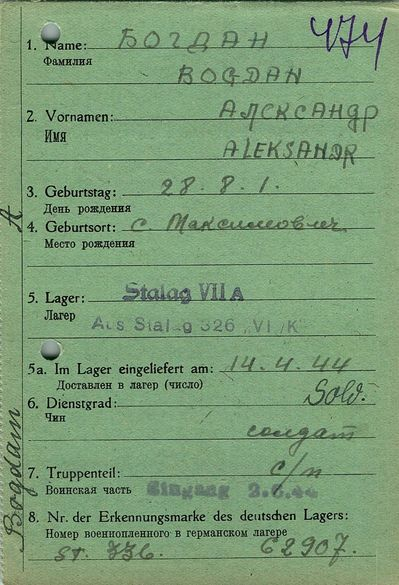 474
1. Name: БОГДАН
Фамилия
BOGDAN
2. Vornamen: АЛЕКСАНДР
Имя
ALEKSANDR
3. Geburtstag: 28. 8. 1.
День рождения
4. Geburtsort: с Максимович
Место рождения
5. Lager: Stalag VII A
Лагер
Aus Stalag 326 „VI /K“
5a. Im Lager eingeliefert am: 14. 4. 44
Доставлен в лагер (число)
6. Dienstgrad: Sold.
Чин
солдат
7. Truppenteil: с/п
Воинская часть Eingang
8. Nr. der Erkennungsmarke des deutschen Lagers:
Номер военнопленного в германском лагере
62907.
Bogdam A